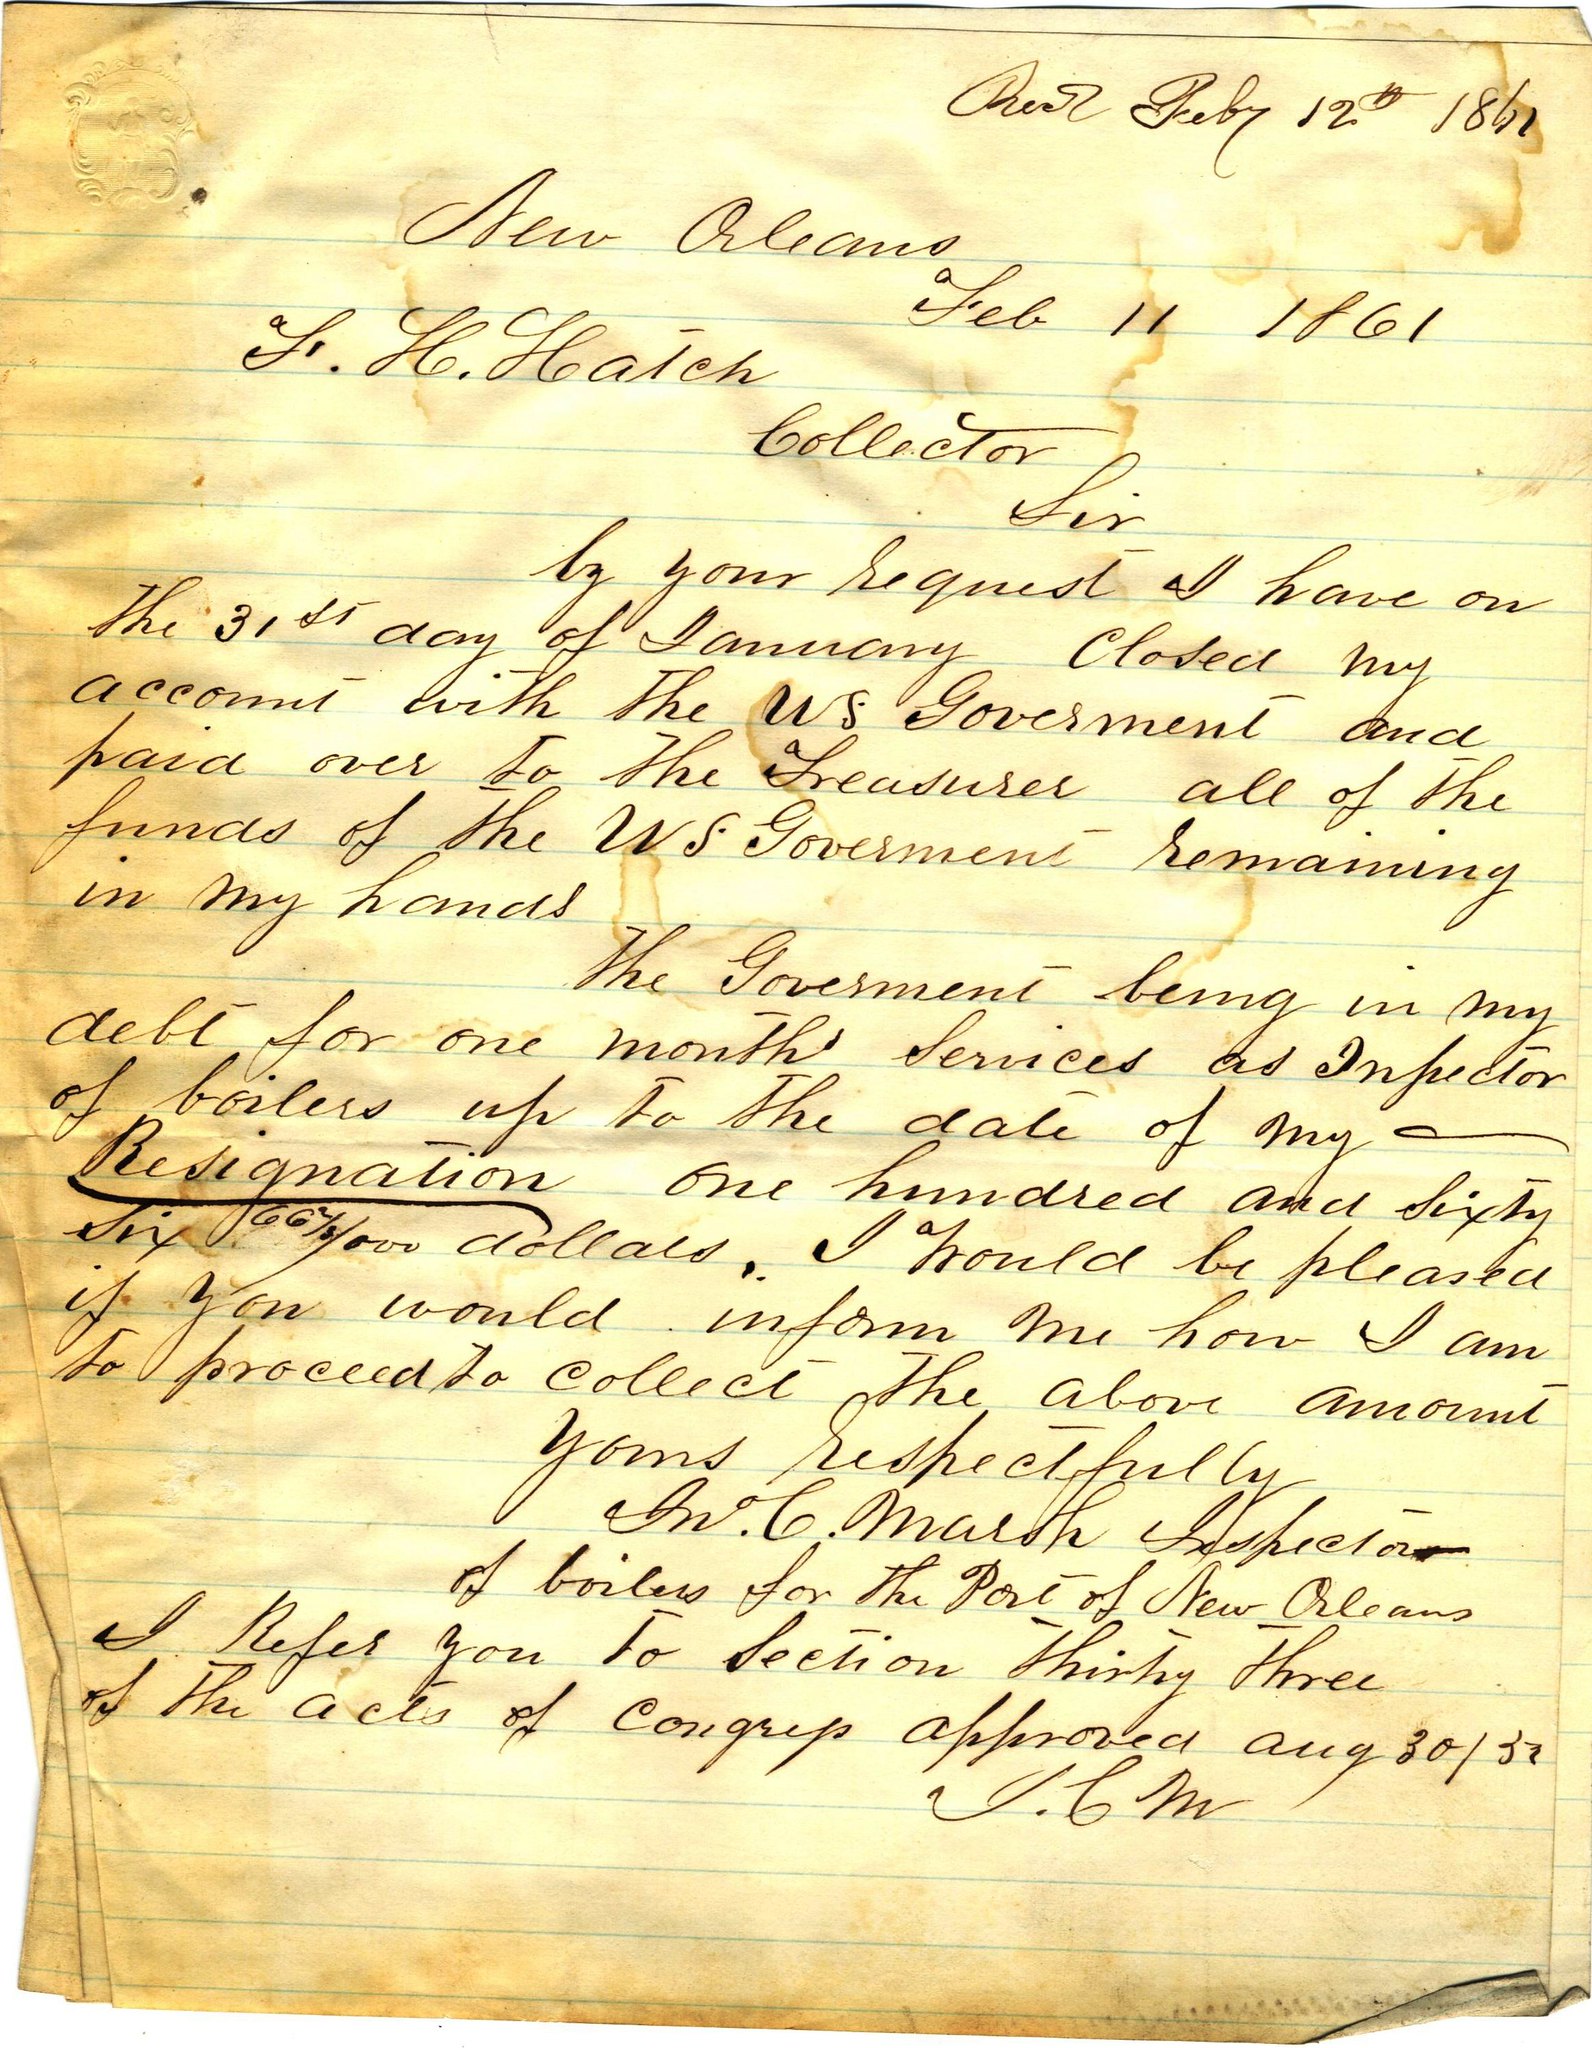 Recd Feby 12th 1861
New Orleans
Feb 11 1861
F. H. Hatch
Collector
Sir
by your request I have on
the 31st day of January Closed my
account with the US Goverment and
paid over to the Treasurer all of the
funds of the US Goverment remaining
in my hands
The Goverment being in my
debt for one months services as Inspector
of boilers up to the date of my
Resignation one hundred and sixty
six dollars. I would be pleased
if you would inform me how I am
to proceed to collect the above amount
yours respectfully
Jno. C. Marsh Inspector
of boilers for the Port of New Orleans
I Refer you to Section thirty three
of the acts of Congress approved aug 30/52
J. C M